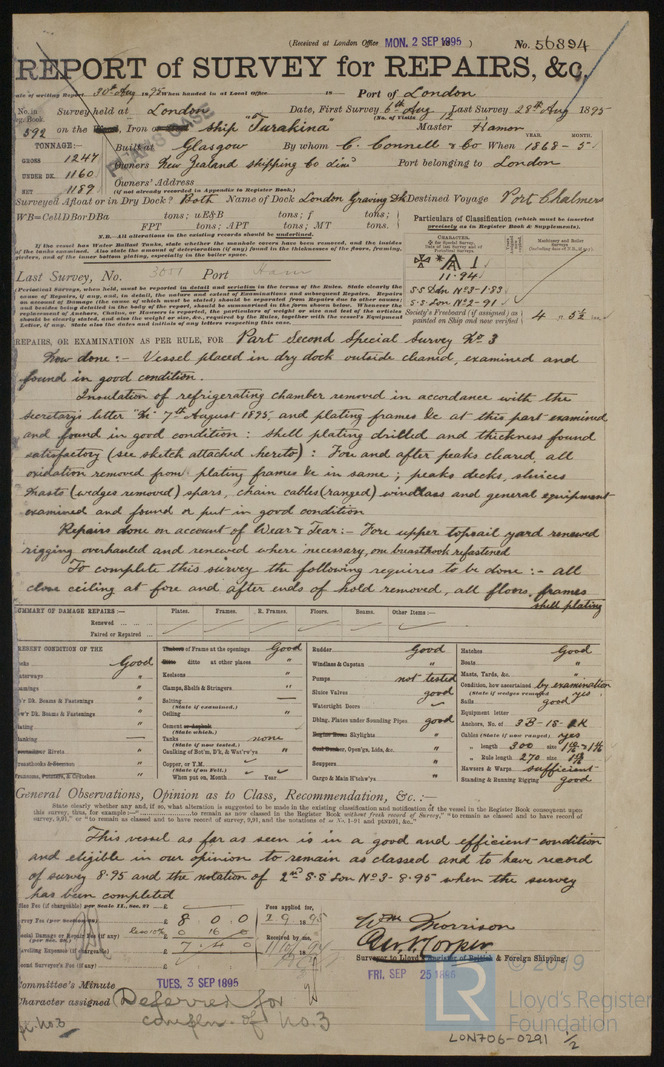 (Received at London Office MON. 2 SEP 1895 ) No. 56894
REPORT of SURVEY for REPAIRS, &c.
Date of writing Report 30th Aug 1895 When handed in at Local Office 18 Port of London
No. in Survey held at London Date, First Survey 6th Aug Last Survey 28th Aug 1895
Reg. Book (No. of Visits 12
592 on the Iron ship "Turakina" Master Hamon
TONNAGE:— Built at Glasgow By whom C. Connell & Co When 1868-5
YEAR. MONTH.
GROSS 1247 Owners New Zealand Shipping Co Limd Port belonging to London
UNDER DK. 1160 Owners' Address
NET 1189 (if not already recorded in Appendix to Register Book.)
PEAKS CASE
Surveyed Afloat or in Dry Dock? Both Name of Dock London Graving Dk Destined Voyage Port Chalmers
WB=CellDBorDBa tons; uE&B tons; f tons;
FPT tons; APT tons; MT tons.
N.B.—All alterations in the existing records should be underlined.
If the vessel has Water Ballast Tanks, state whether the manhole covers have been removed, and the insides
of the tanks examined. Also state the amount of deterioration (if any) found in the thicknesses of the floors, framing,
girders, and of the inner bottom plating, especially in the boiler space.
Particulars of Classification (which must be inserted
precisely as in Register Book & Supplements).
CHARACTER.
Machinery and Boiler
Surveys
A 1
11.94
SS Lon No 3-1.83
S.S. Lon No 2-91
Society's Freeboard (if assigned) as
painted on Ship and now verified 4 5½
Last Survey, No. Port
(Periodical Surveys, when held, must be reported in detail and seriatim in the terms of the Rules. State clearly the
REPAIRS, OR EXAMINATION AS PER RULE, FOR Part Second Special Survey No 3
Now done:— Vessel placed in dry dock outside cleaned, examined and
found in good condition.
Insulation of refrigerating chamber removed in accordance with the
secretary's letter 7th August 1895, and plating frames &c at this part examined
and found in good condition: shell plating drilled and thickness found
satisfactory (see sketch attached hereto): Fore and after peaks cleared, all
oxidation removed from plating frames &c in same; peaks decks, sluices
masts (wedges removed) spars, chain cables (ranged) windlass and general equipment
examined and found or put in good condition
Repairs done on account of Wear & Tear:— Fore upper topsail yard renewed
rigging overhauled and renewed where necessary, one breasthook refastened
To complete this survey the following requires to be done:— all
close ceiling at fore and after ends of hold removed, all floors, frames
shell plating
SUMMARY OF DAMAGE REPAIRS:— Plates. Frames. R. Frames. Floors. Beams. Other Items:—
Renewed
Faired or Repaired
PRESENT CONDITION OF THE
Decks Good
Waterways "
Coamings "
Up'r Dk. Beams & Fastenings "
Low'r Dk. Beams & Fastenings "
Plating "
Planking
Rivets "
Breasthooks & "
Pointers & Crutches "
Timbers of Frame at the openings Good
Ditto ditto at other places "
Keelsons "
Clamps, Shelfs & Stringers "
Salting
(State if examined.)
Ceiling "
Cement or Asphalt "
(State which.)
Tanks none
(State if now tested.)
Caulking of Bot'm, D'k, & Wat'rw'ys "
Copper, or Y.M.
(State if on Felt.)
When put on, Month Year
Rudder Good
Windlass & Capstan "
Pumps not tested
Sluice Valves good
Watertight Doors
Dblng. Plates under Sounding Pipes good
Engine Room Skylights
Coal Bunker, Open'gs, Lids, &c.
Scuppers "
Cargo & Main H'tchw'ys "
Hatches Good
Boats "
Masts, Yards, &c. "
Condition, how ascertained by examination
(State if wedges removed yes
Sails good
Equipment letter
Anchors, No. of 3B-1S-2K
Cables (State if now ranged) yes
" length 300 size
" Rule length 270 size
Hawsers & Warps sufficient
Standing & Running Rigging good
General Observations, Opinion as to Class, Recommendation, &c.:—
State clearly whether any, and if so, what alteration is suggested to be made in the existing classification and notification of the vessel in the Register Book consequent upon
this survey, thus, for example:—"..................to remain as now classed in the Register Book without fresh record of Survey," "to remain as classed and to have record of
survey, 9,91," or "to remain as classed and to have record of survey, 9,91, and the notations of
This vessel as far as seen is in a good and efficient condition
and eligible in our opinion to remain as classed and to have record
of survey 8.95 and the notation of 2nd S.S Lon No 3-8.95 when the survey
has been completed
Fee (if chargeable) per Scale II., Sec. 27 £
Survey Fee (per section 29) £ 8 0 0
Special Damage or Repair Fee (if any) £ 0 16 0
(per Sec. 28.)
Travelling Expenses (if chargeable) £ 7 4 0
Second Surveyor's Fee (if any) £
Fees applied for,
2 9 1895
Received by me,
Wm Morrison
Surveyor to Lloyd's Register of British & Foreign Shipping.
Committee's Minute TUES. 3 SEP 1895
FRI. SEP 25 1896
Character assigned Deferred for
compln. of No. 3
© 2019
LR
Lloyd's Register
Foundation
LON706-0291 1/2